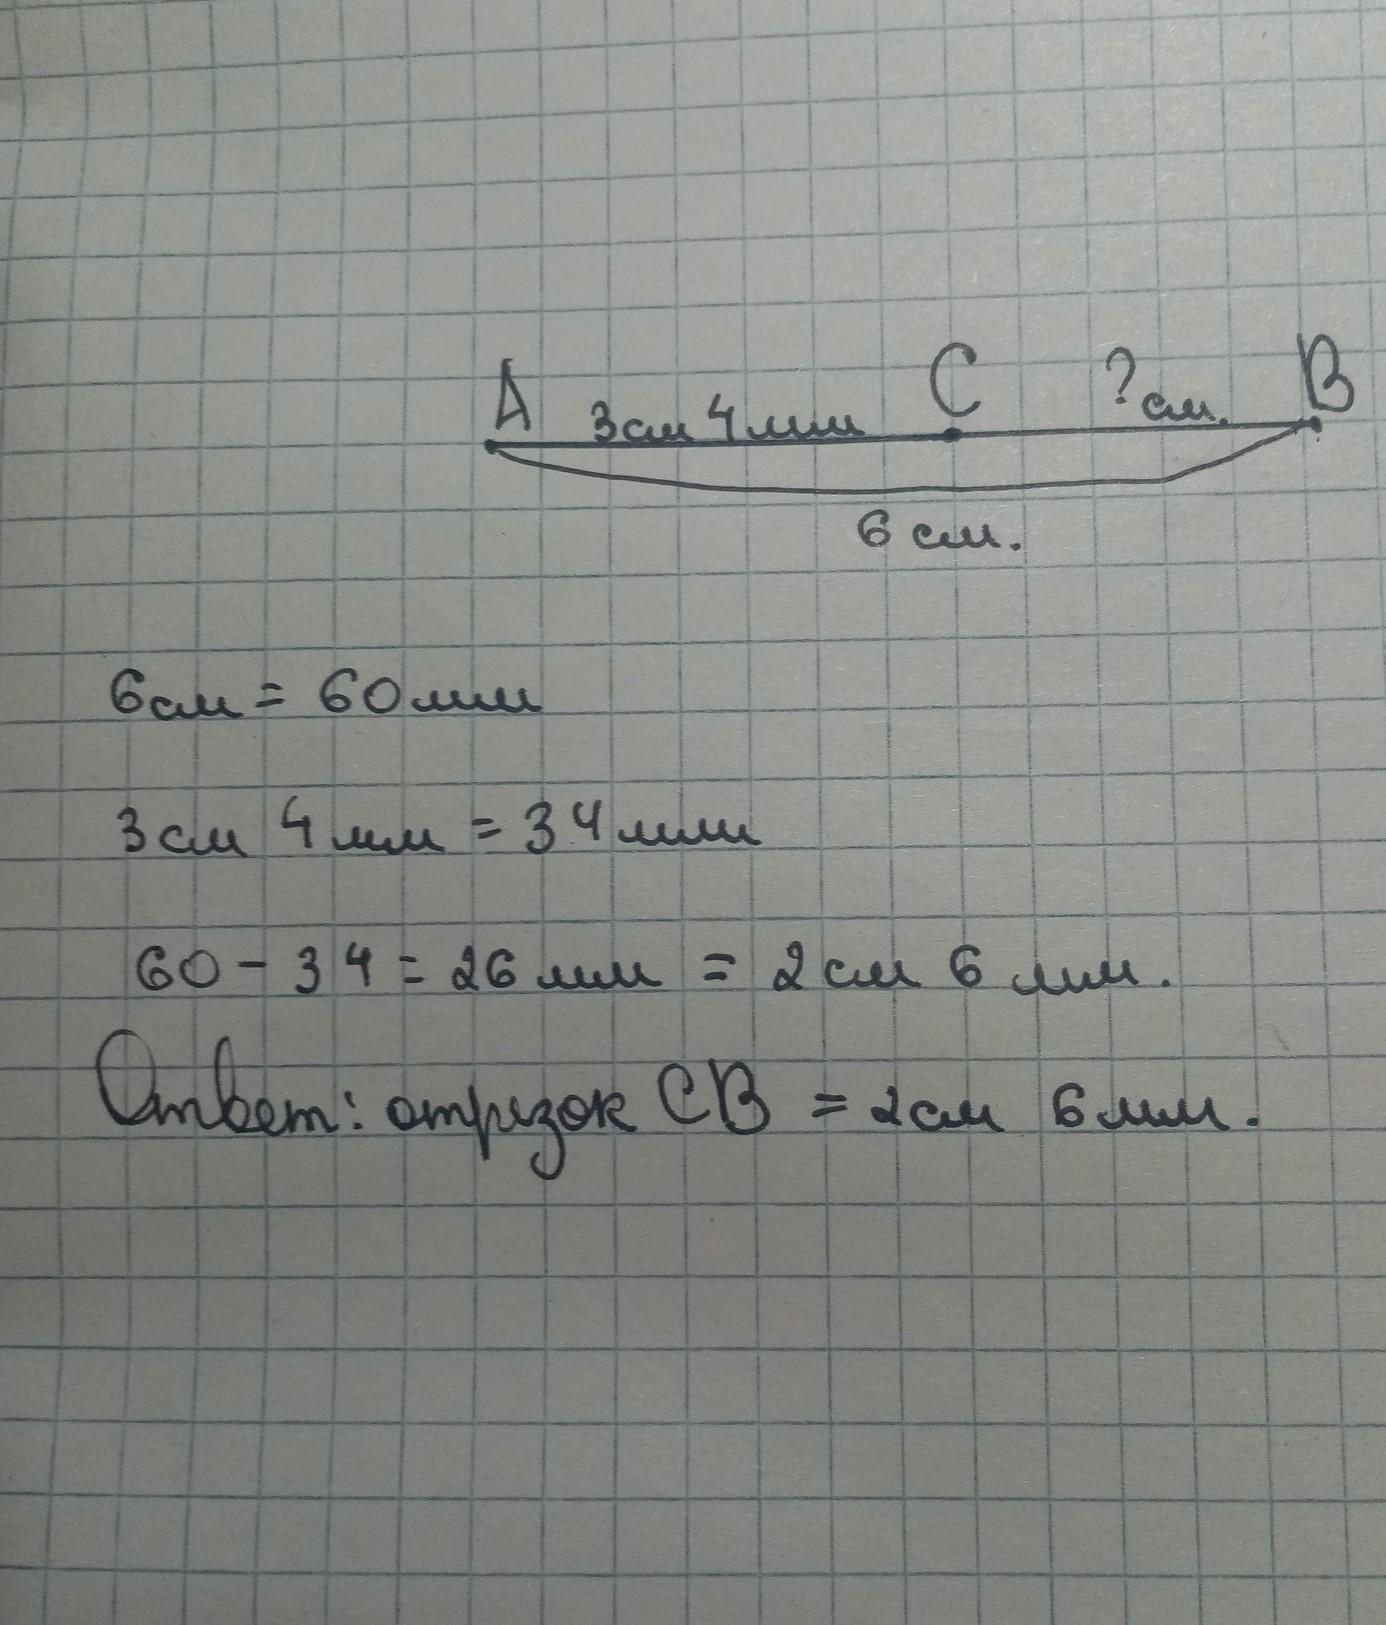 A 3см 4мм C ?см. B
6 см.
6см = 60мм
3см 4мм = 34мм
60 - 34 = 26мм = 2см 6 мм.
Ответ: отрезок CB = 2см 6мм.